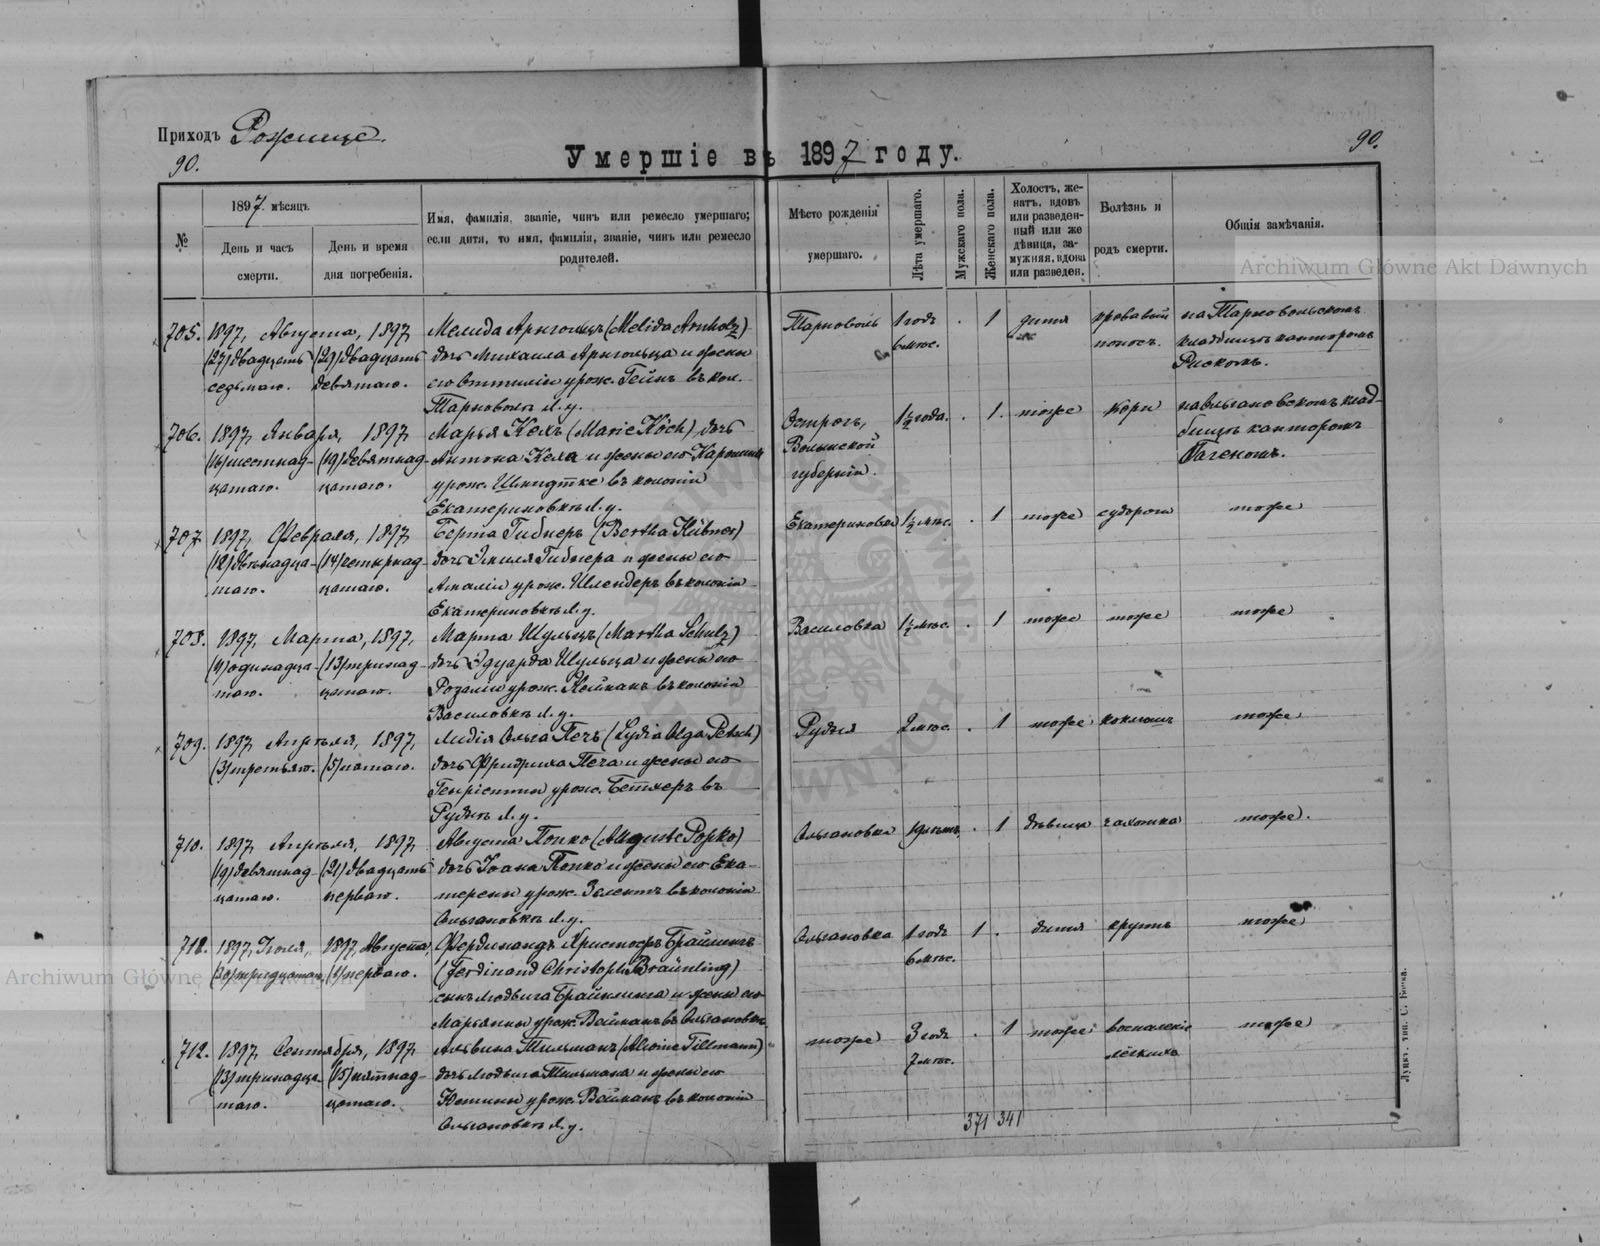 Приходъ Рожище.
90.
90.
Умершіе въ 1897 году.
№
1897 мѣсяцъ
День и часъ смерти.
День и время дня погребенія.
Имя, фамилія, званіе, чинъ или ремесло умершаго;
если дитя, то имя, фамилія, званіе, чинъ или ремесло
родителей.
Мѣсто рожденія
умершаго.
Лѣта умершаго.
Мужскаго пола.
Женскаго пола.
Холостъ, же-
натъ, вдовъ
или разведен-
ный или же
дѣвица, за-
мужняя, вдова
или разведен.
Болѣзнь и
родъ смерти.
Общія замѣчанія.
Archiwum Główne Akt Dawnych
705. 1897, Августа, 1897, Мелида Арнгольцъ (Melida Arnholz) Тарноволь 1 годъ . 1 дитя кровавый на Тарновольскомъ
(27) двадцать (29) двадцать дочь Михаила Арнгольца и жены 6 мѣс. поносъ. кладбищѣ канторомъ
седьмаго. девятаго. его Оттиліи урож. Гейнъ въ кол. Рискомъ.
Тарноволь Л. у.
706. 1897, Января, 1897, Марья Кехъ (Marie Köch) дочь Острогъ, 1½ года . 1. тоже кори на Ольгановскомъ клад-
(16) шестнад- (19) девятнад- Антона Кеха и жены его Каролины Волынской бищѣ канторомъ
цатаго. цатаго. урож. Шмидтке въ колоніи губерніи.
Екатериновкѣ Л. у.
707 1897, Февраля, 1897, Берта Гибнеръ (Bertha Hübner) Екатериновка 1½ мѣс. . 1 тоже судороги тоже
(12) двѣнадца- (14) четырнад- дочь Эмиля Гибнера и жены его
таго. цатаго. Амаліи урож. Шлендеръ въ колоніи
Екатериновкѣ Л. у.
708. 1897, Марта, 1897, Марта Шульцъ (Martha Schulz) Василовка 1½ мѣс. . 1 тоже тоже тоже
(11) одинадца- (13) тринад- дочь Эдуарда Шульца и жены его
таго. цатаго. Розаліи урож. въ колоніи
Василовкѣ Л. у.
709. 1897, Апрѣля, 1897, Лидія Ольга Печъ (Lydia Olga Petsch) Рудня 2 мѣс. . 1 тоже коклюшъ тоже
(3) третьяго. (5) пятаго. дочь Фридриха Печа и жены его
Генріетты урож. Бетхеръ въ
Руднѣ Л. у.
710. 1897, Апрѣля, 1897, Августа Попко (Auguste Popko) Ольгановка 19 лѣтъ . 1 дѣвица чахотка тоже.
(19) девятнад- (21) двадцать дочь Іоана Попко и жены его Ека-
цатаго. перваго. терены урож. Зелентъ въ колоніи
Ольгановкѣ Л. у.
711. 1897, Іюля, 1897, Августа, Фердинандъ Христофъ Брайнлингъ Ольгановка 1 годъ 1 . дитя крупъ тоже
(30) тридцатаго. (1) перваго. (Ferdinand Christoph Bräunling) 6 мѣс.
сынъ Людвига Брайнлинга и жены его
Марьянны урож. Вайманъ въ Ольгановкѣ
712. 1897, Сентября, 1897, Альвина Тильманъ (Alwine Tillmann) тоже 3 года . 1 тоже воспаленіе тоже
(13) тринадца- (15) пятнад- дочь Людвига Тильмана и жены его 7 мѣс. лёгкихъ
таго. цатаго. урож. Вайманъ въ колоніи
Ольгановкѣ Л. у.
371 341
Archiwum Główne
Луцкъ. тип. С. Бокка.